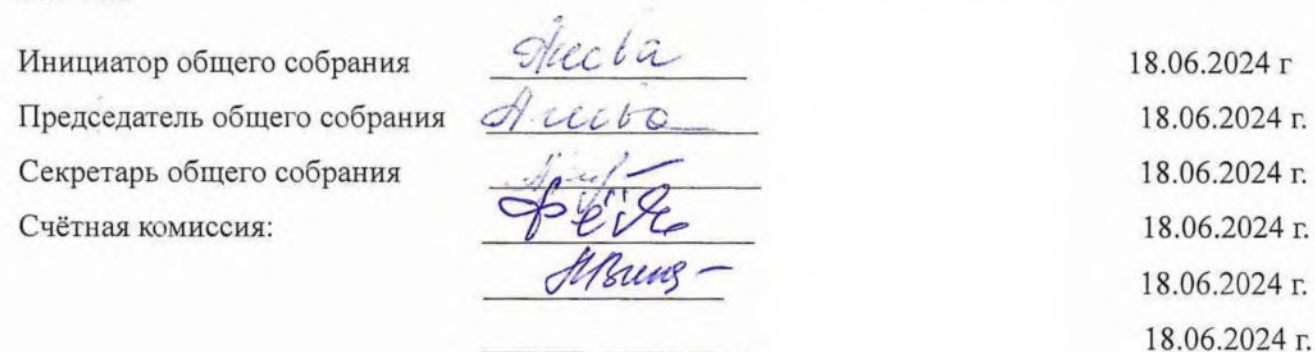 Инициатор общего собрания 18.06.2024 г
Председатель общего собрания 18.06.2024 г.
Секретарь общего собрания 18.06.2024 г.
Счётная комиссия: 18.06.2024 г.
18.06.2024 г.
18.06.2024 г.